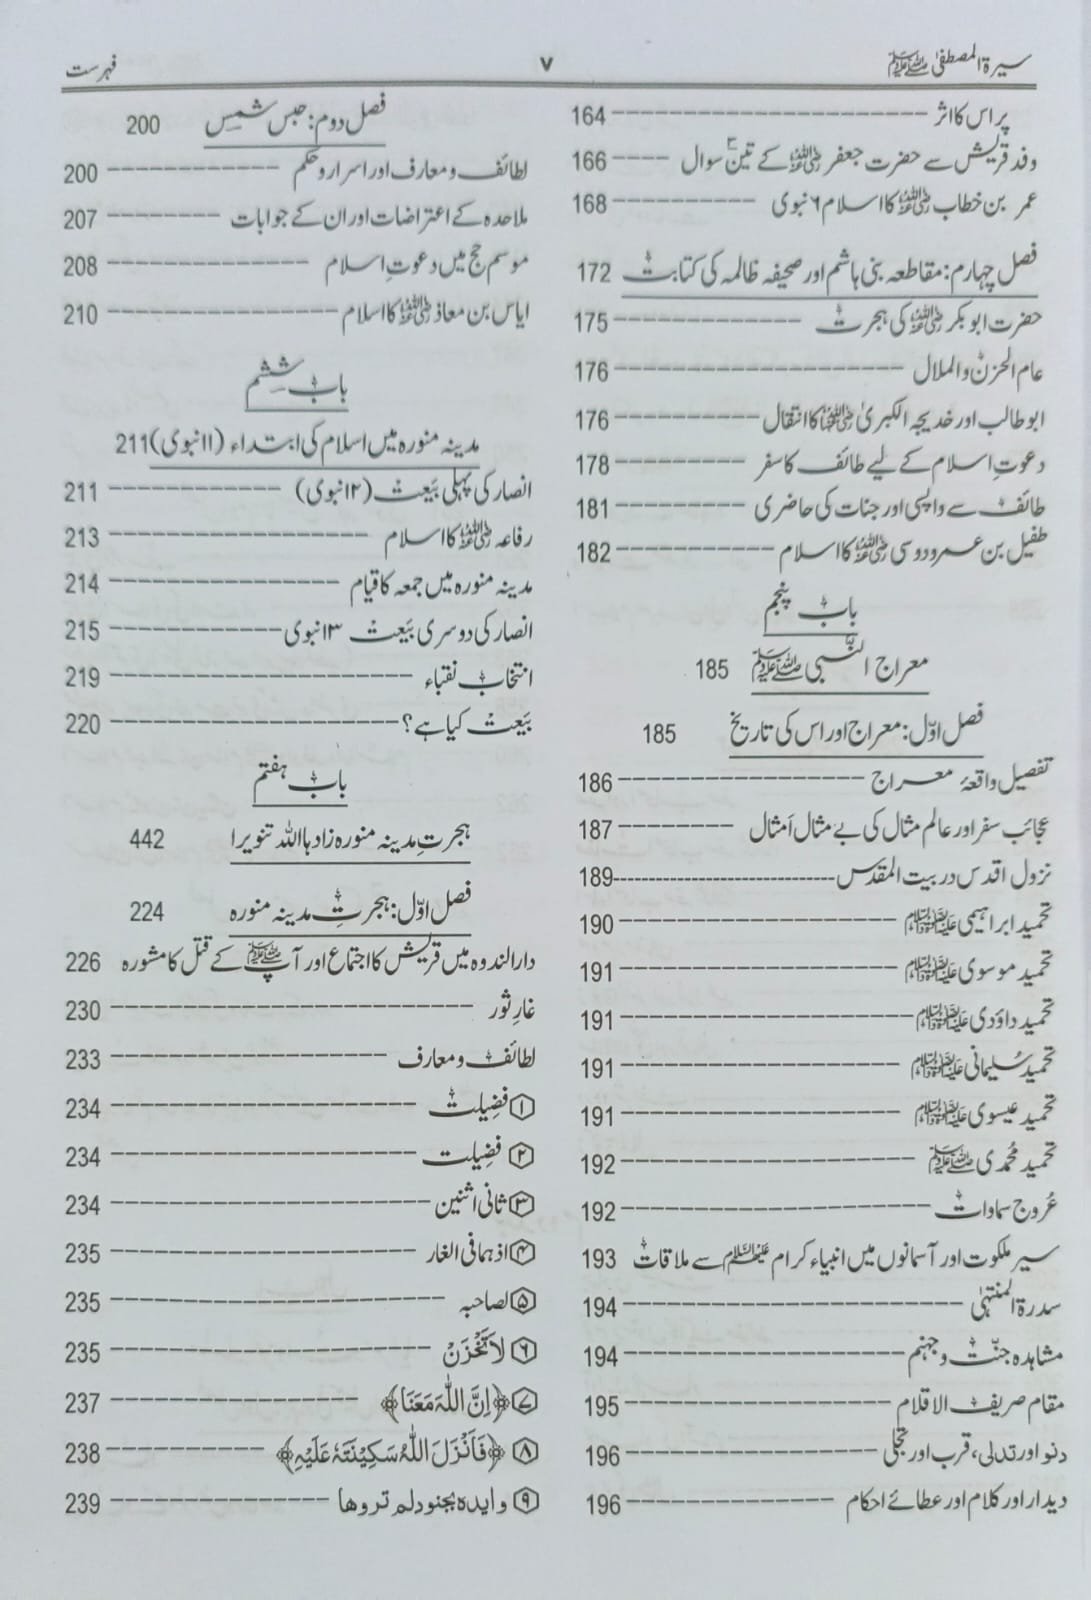 سیرۃ المصطفیٰ ﷺ ۷ فہرست
پر اس کا اثر ---------- 164
وفد قریش سے حضرت جعفر رضی اللہ عنہ کے تین سوال ---------- 166
عمر بن خطاب رضی اللہ عنہ کا اسلام ۶ نبوی ---------- 168
فصل چہارم: مقاطعہ بنی ہاشم اور صحیفہ ظالمہ کی کتابت 172
حضرت ابوبکر رضی اللہ عنہ کی ہجرت ---------- 175
عام الحزن والملال ---------- 176
ابوطالب اور خدیجہ الکبریٰ رضی اللہ عنہا کا انتقال ---------- 176
دعوتِ اسلام کے لیے طائف کا سفر ---------- 178
طائف سے واپسی اور جنات کی حاضری ---------- 181
طفیل بن عمرو دوسی رضی اللہ عنہ کا اسلام ---------- 182
باب پنجم
معراج النبی ﷺ 185
فصل اوّل: معراج اور اس کی تاریخ 185
تفصیل واقعۂ معراج ---------- 186
عجائب سفر اور عالم مثال کی بے مثال اَمثال ---------- 187
نزول اقدس در بیت المقدس ---------- 189
تحمید ابراہیمی علیہ الصلوٰۃ والسلام ---------- 190
تحمید موسوی علیہ الصلوٰۃ والسلام ---------- 191
تحمید داؤدی علیہ الصلوٰۃ والسلام ---------- 191
تحمید سُلیمانی علیہ الصلوٰۃ والسلام ---------- 191
تحمید عیسوی علیہ الصلوٰۃ والسلام ---------- 191
تحمید مُحمدی ﷺ ---------- 192
عُروج سماوات ---------- 192
سیر ملکوت اور آسمانوں میں انبیاء کرام علیہم السلام سے ملاقات 193
سدرۃ المنتہیٰ ---------- 194
مشاہدہ جنّت و جہنم ---------- 194
مقام صریف الاقلام ---------- 195
دنو اور تدلی، قرب اور تجلی ---------- 196
دیدار اور کلام اور عطائے احکام ---------- 196
فصل دوم: حبس شمسِ 200
لطائف و معارف اور اسرار و حکم ---------- 200
ملاحدہ کے اعتراضات اور ان کے جوابات ---------- 207
موسم حج میں دعوتِ اسلام ---------- 208
ایاس بن معاذ رضی اللہ عنہ کا اسلام ---------- 210
باب ششم
مدینہ منورہ میں اسلام کی ابتداء (۱۱ نبوی) 211
انصار کی پہلی بَیعت (۱۲ نبوی) ---------- 211
رفاعہ رضی اللہ عنہ کا اسلام ---------- 213
مدینہ منورہ میں جمعہ کا قیام ---------- 214
انصار کی دوسری بیَعت ۱۳ نبوی ---------- 215
انتخاب نقباء ---------- 219
بَیعت کیا ہے؟ ---------- 220
باب ہفتم
ہجرتِ مدینہ منورہ زادہا اللہ تنویرا 442
فصل اوّل: ہجرتِ مدینہ منورہ 224
دارالندوہ میں قریش کا اجتماع اور آپ ﷺ کے قتل کا مشورہ 226
غارِ ثور ---------- 230
لطائف و معارف ---------- 233
۱ فضیلت ---------- 234
۲ فضِیلت ---------- 234
۳ ثانی اثنین ---------- 234
۴ اذہما فی الغار ---------- 235
۵ لصاحبہ ---------- 235
۶ لَا تَحْزَنْ ---------- 235
۷ ﴿اِنَّ اللّٰہَ مَعَنَا﴾ ---------- 237
۸ ﴿فَاَنْزَلَ اللّٰہُ سَکِیْنَتَہٗ عَلَیْہِ﴾ ---------- 238
۹ وایدہ بجنود لم تروھا ---------- 239